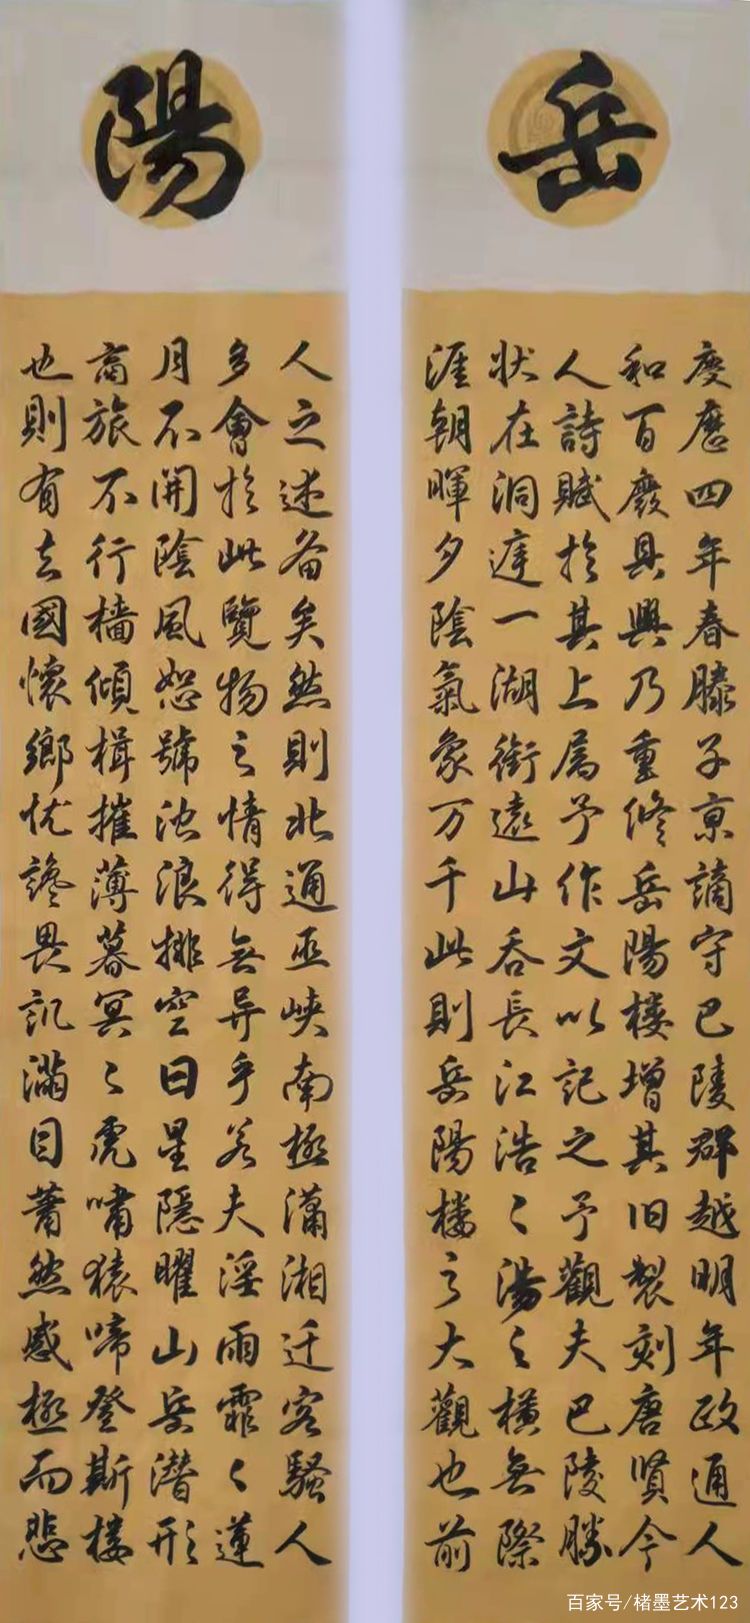 岳
慶曆四年春滕子京謫守巴陵群越明年政通人
和百廢具興乃重修岳陽楼增其旧製刻唐贤今
人詩賦於其上属予作文以記之予觀夫巴陵勝
状在洞庭一湖銜遠山吞長江浩〻湯〻橫無際
涯朝暉夕陰氣象万千此則岳陽楼之大觀也前
陽
人之述备矣然則北通巫峡南極瀟湘迁客騷人
多會於此覽物之情得無异乎若夫淫雨霏〻蓮
月不開陰風怒號浊浪排空日星隱曜山岳潜形
商旅不行檣傾楫摧薄暮冥〻虎嘯猿啼登斯楼
也則有去國懷鄉忧讒畏讥滿目蕭然感極而悲
百家号/楮墨艺术123